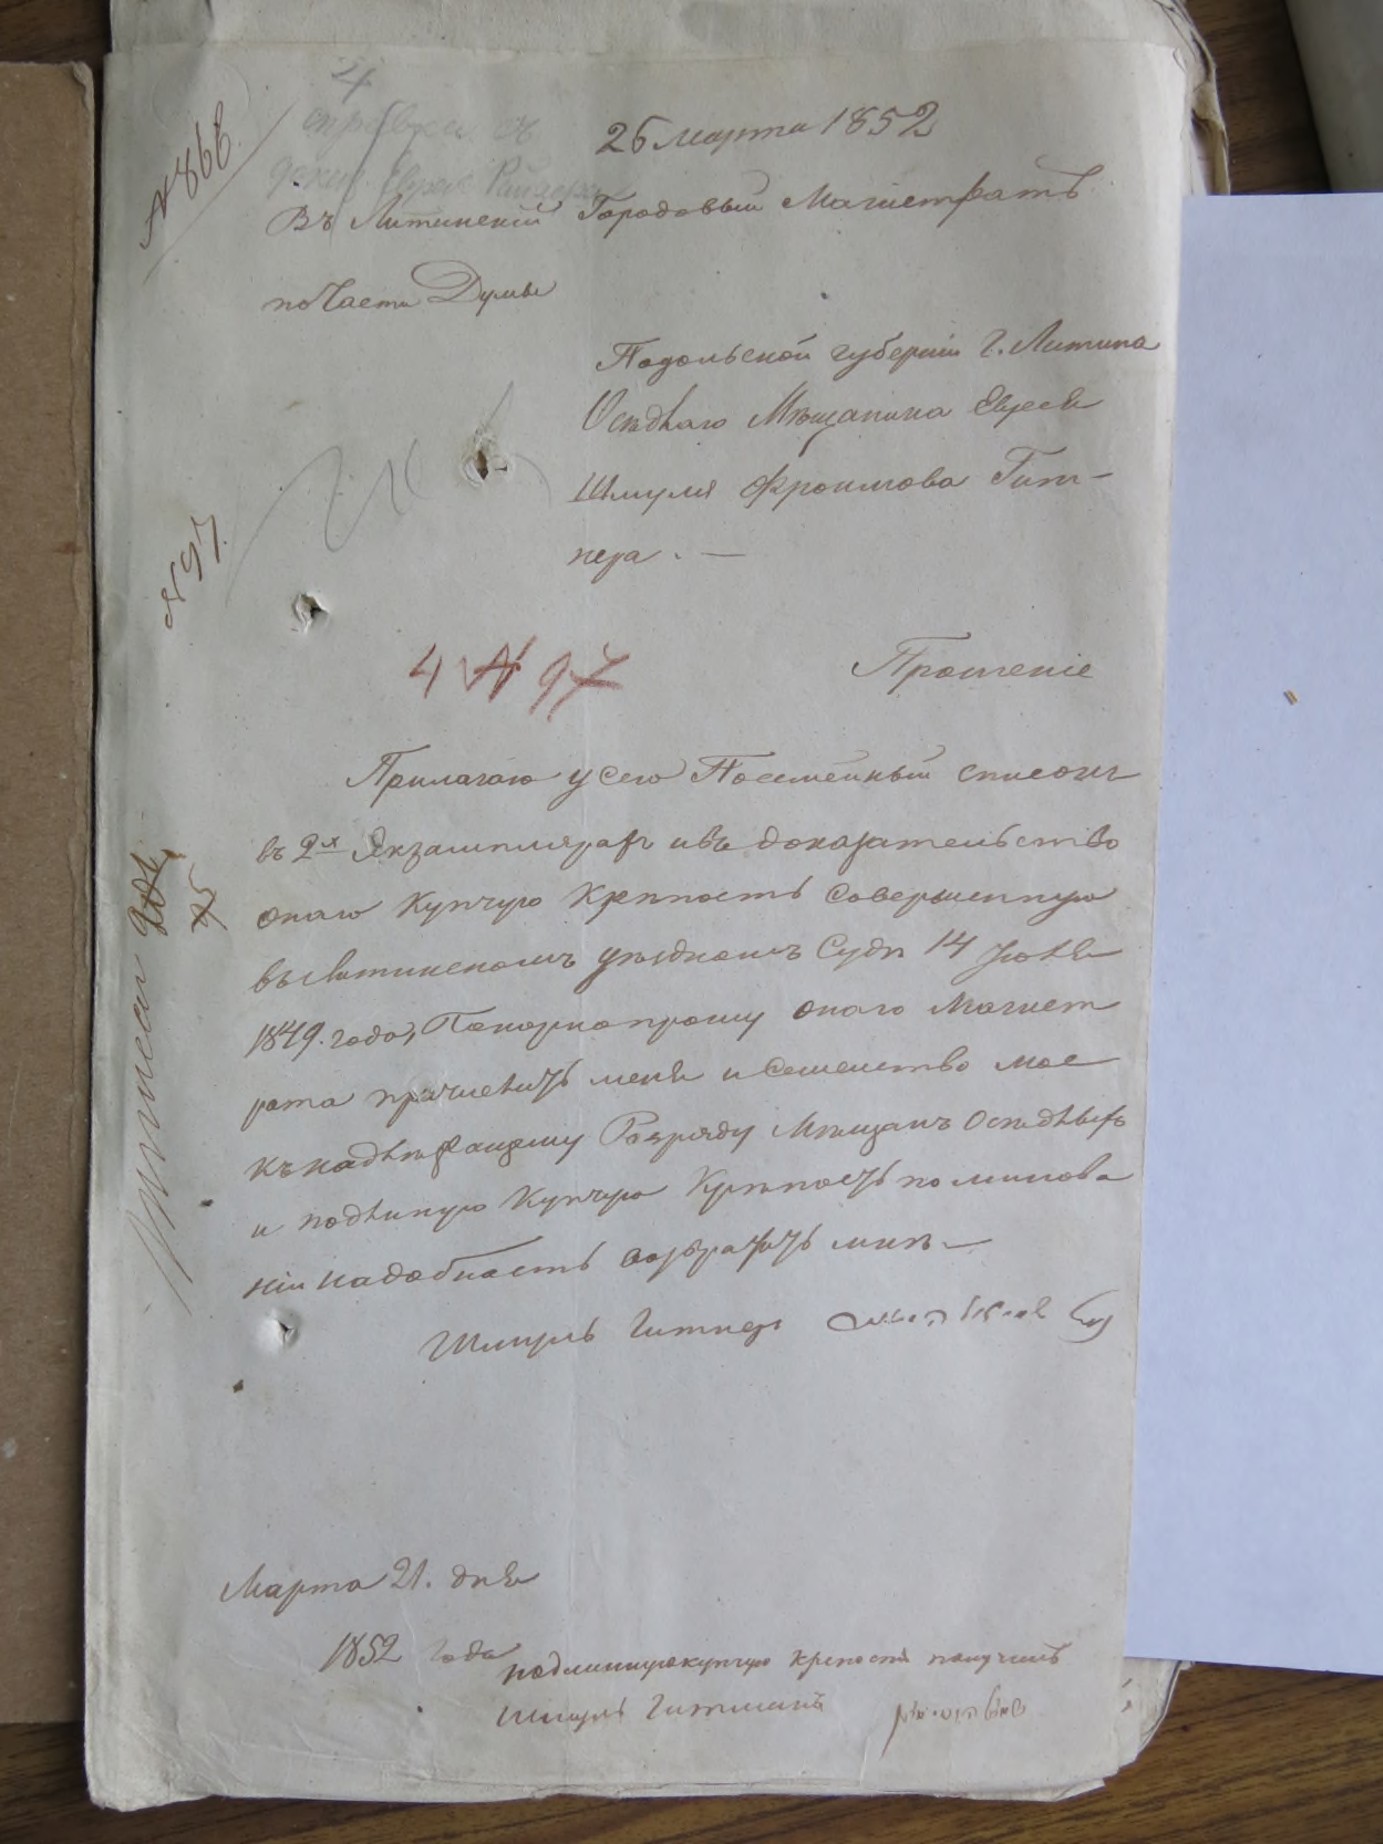 № 866.
26 марта 1852
Въ Литинскій Городовый Магистратъ
по Части Думы
Подольской губерніи г. Литина
Осѣдлаго Мѣщанина Еврея
Шмуля Фроимова Гит-
нера. —
№ 97.
4 № 97
Прошеніе
Прилагаю у сего Посемейный списокъ
въ 2х Экземплярах и въ доказательство
онаго Купчую Крѣпость совершенную
въ Литинскомъ уѣздномъ Судѣ 14 Июля
1849. года, Покорно прошу онаго Магист
рата причислить меня и Семейство мое
къ надлѣжащему Розряду Мѣщанъ Осѣдлыхъ
и подлиную Купчую Крѣпость по минова
ніи надобность возвратить мнѣ. —
Шмуль Гитнер
Марта 21. дня
1852 года
подлинную купчую крепость получилъ
Шмуль Гитникъ